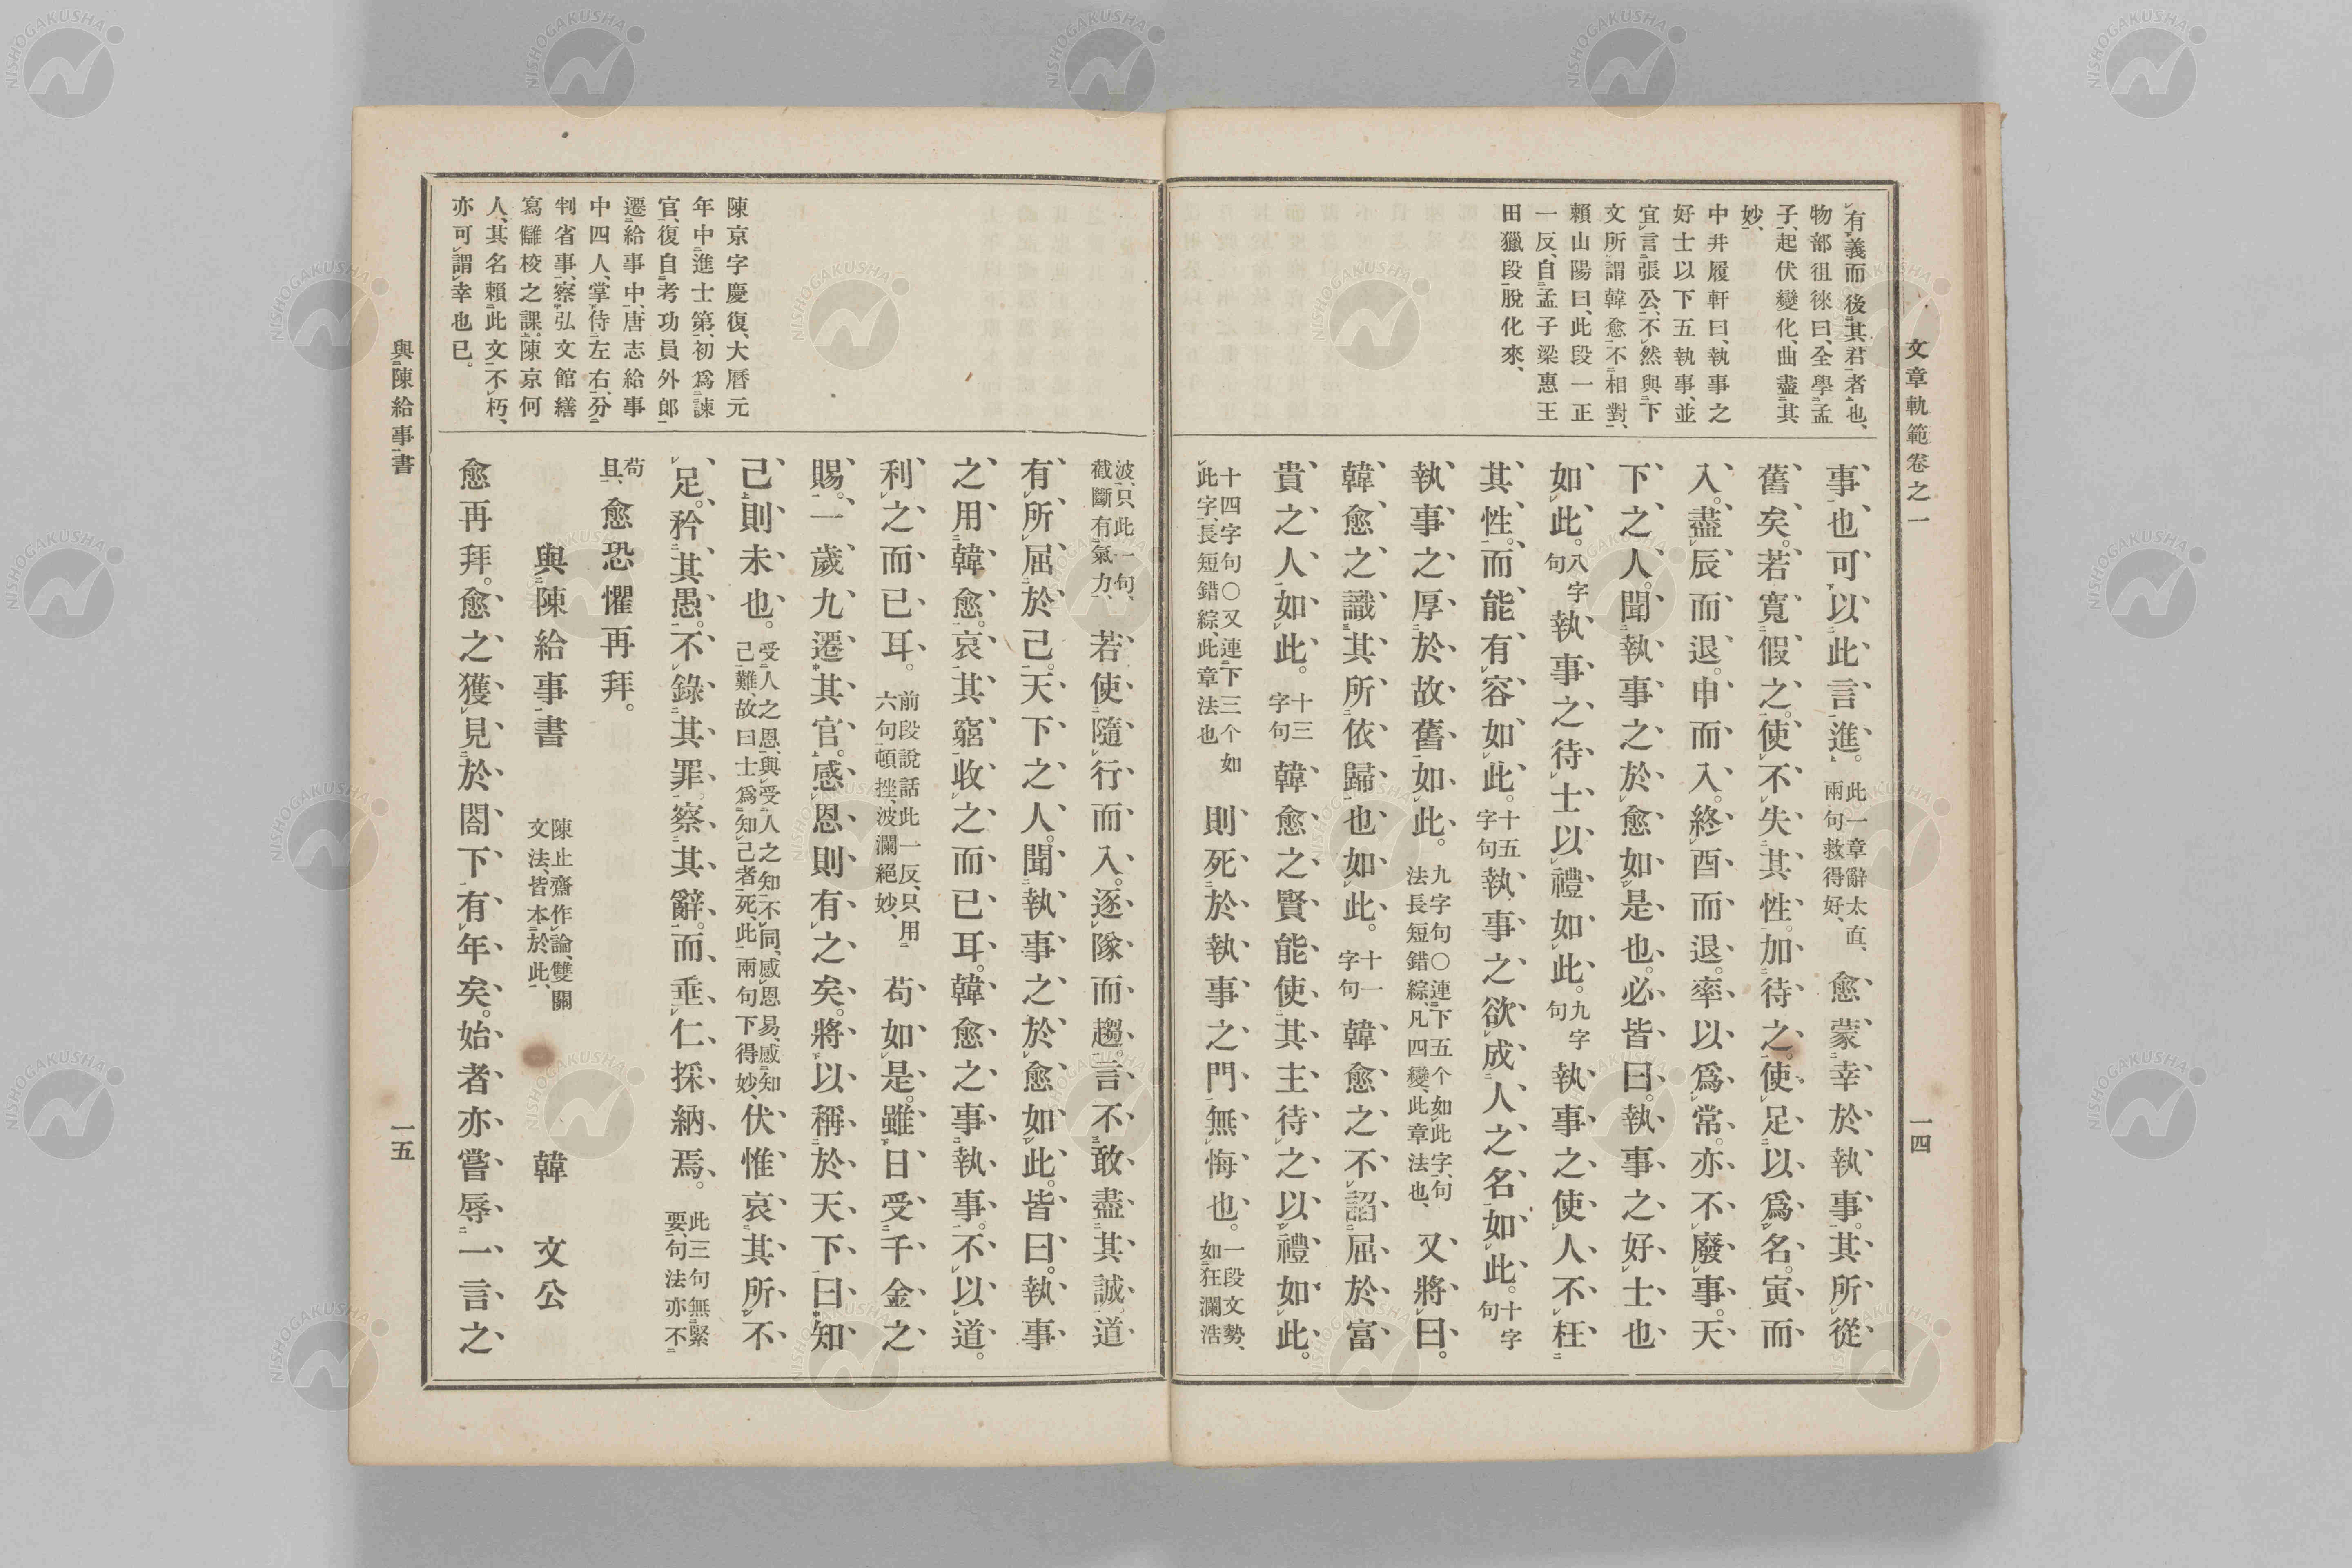 文章軌範卷之一
一四
有義而後其君者也、
物部徂徠曰、全學孟
子、起伏變化、曲盡其
妙、
中井履軒曰、執事之
好士以下五執事、並
宜言張公、不然與下
文所謂韓愈不相對、
賴山陽曰、此段一正
一反、自孟子梁惠王
田獵段脫化來、
事也可以此言進。此一章辭太直、兩句救得好、愈蒙幸於執事。其所從
舊矣。若寬假之。使不失其性。加待之。使足以爲名。寅而
入。盡辰而退。申而入。終酉而退。率以爲常。亦不廢事。天
下之人。聞執事之於愈如是也。必皆曰。執事之好士也
如此。八字句執事之待士以禮如此。九字句執事之使人不枉
其性。而能有容如此。十五字句執事之欲成人之名如此。十字句
執事之厚於故舊如此。九字句〇連下五个如此字、句法長短錯綜、凡四變、此章法也、又將曰。
韓愈之識其所依歸也如此。十一字句韓愈之不諂屈於富
貴之人如此。十三字句韓愈之賢能使其主待之以禮如此。
十四字句〇又連下三个如此字、長短錯綜、此章法也則死於執事之門無悔也。一段文勢、如狂瀾浩
波、只此一句、截斷有氣力、若使隨行而入。逐隊而趨。言不敢盡其誠。道
有所屈於己。天下之人。聞執事之於愈如此。皆曰。執事
之用韓愈。哀其窮。收之而已耳。韓愈之事執事。不以道。
利之而已耳。前段說話此一反、只用六句頓挫、波瀾絕妙、苟如是。雖日受千金之
賜。一歲九遷其官。感恩則有之矣。將以稱於天下曰知
己則未也。受人之恩、與受人之知不同、感恩易、感知己難、故曰士爲知己者死、此兩句下得妙、伏惟哀其所不
足。矜其愚。不錄其罪。察其辭。而垂仁採納焉。此三句無緊要、句法亦不
苟且、愈恐懼再拜。
與陳給事書 陳止齋作論、雙關文法、皆本於此、 韓文公
愈再拜。愈之獲見於閤下有年矣。始者亦嘗辱一言之
陳京字慶復、大曆元
年中進士第、初爲諫
官、復自考功員外郎
遷給事中、唐志給事
中四人、掌侍左右、分
判省事、察弘文館繕
寫讎校之課。陳京何
人、其名賴此文不朽、
亦可謂幸也已。
與陳給事書
一五
NISHOGAKUSHA